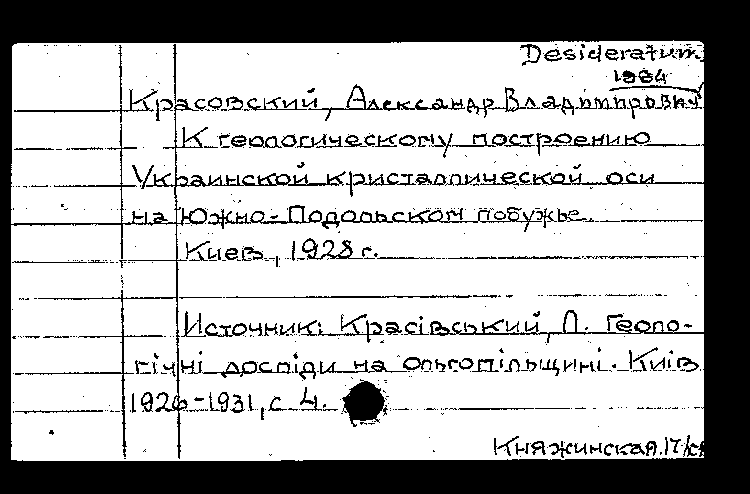 Desideratum
1984
Красовский, Александр Владимирович
К геологическому построению
Украинской кристаллической оси
на Южно-Подольском побужье.
Киев, 1928 г.
Источник: Красівський, О. Геоло-
гічні досліди на ольгопільщині. Київ
1926-1931, с 4.
Княжинская. 17/